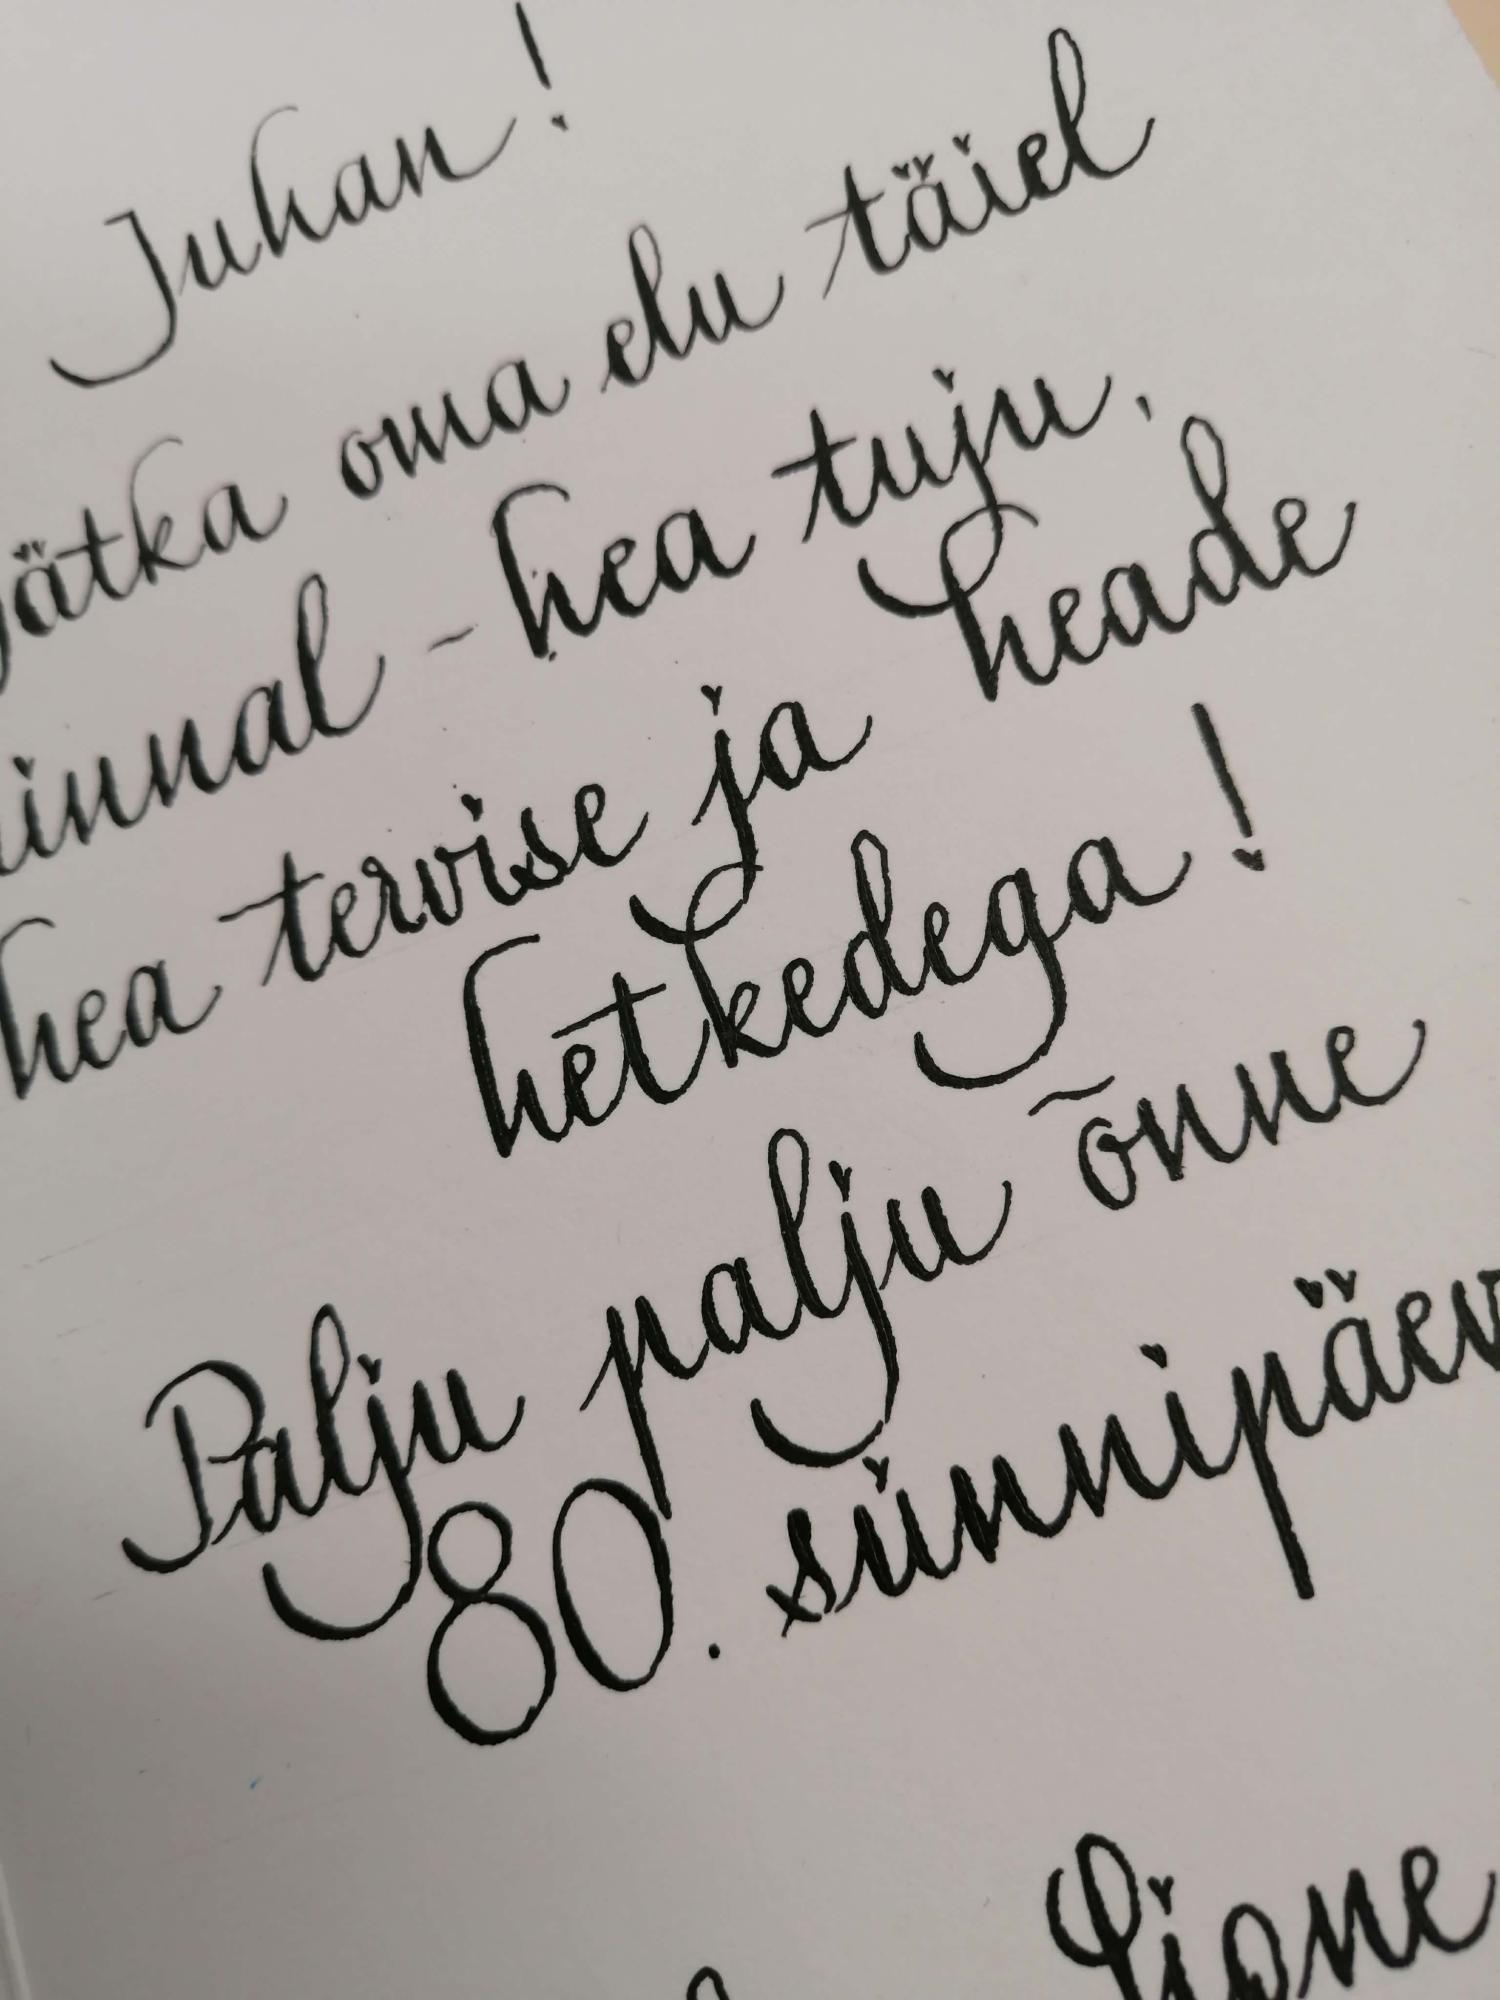 Juhan!
jätka oma elu täiel
innal - hea tuju,
hea tervise ja heade
hetkedega!
Palju palju õnne
80. sünnipäev